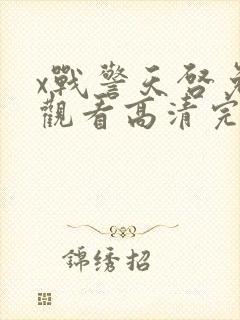 x戰警天啓免
觀看高清完
錦绣招